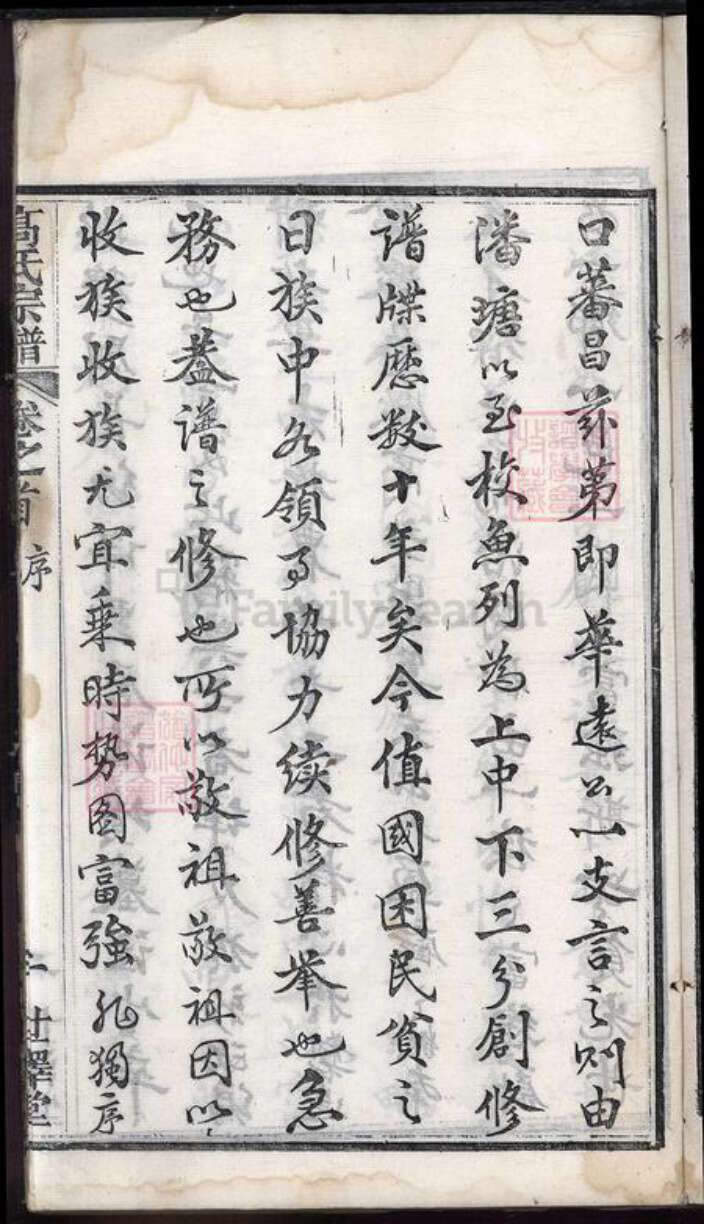 口蕃昌茲第即華遠公一支言之则由
潘塘以至校魚列為上中下三分創修
譜牒歷数十年矣今值國困民貧之
日族中各領事協力续修善举也急
務也蓋譜之修也所以敬祖敬祖因以
收族收族尤宜乗時势图富強非獨序
高氏宗譜 卷之首 序
FamilySearch